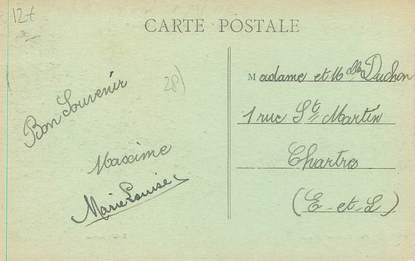 12+
CARTE POSTALE
Bon Souvenir
28)
Maxime
Marie Louise
Madame et Melle Duchon
1 rue St Martin
Chartres
(E-et-L)